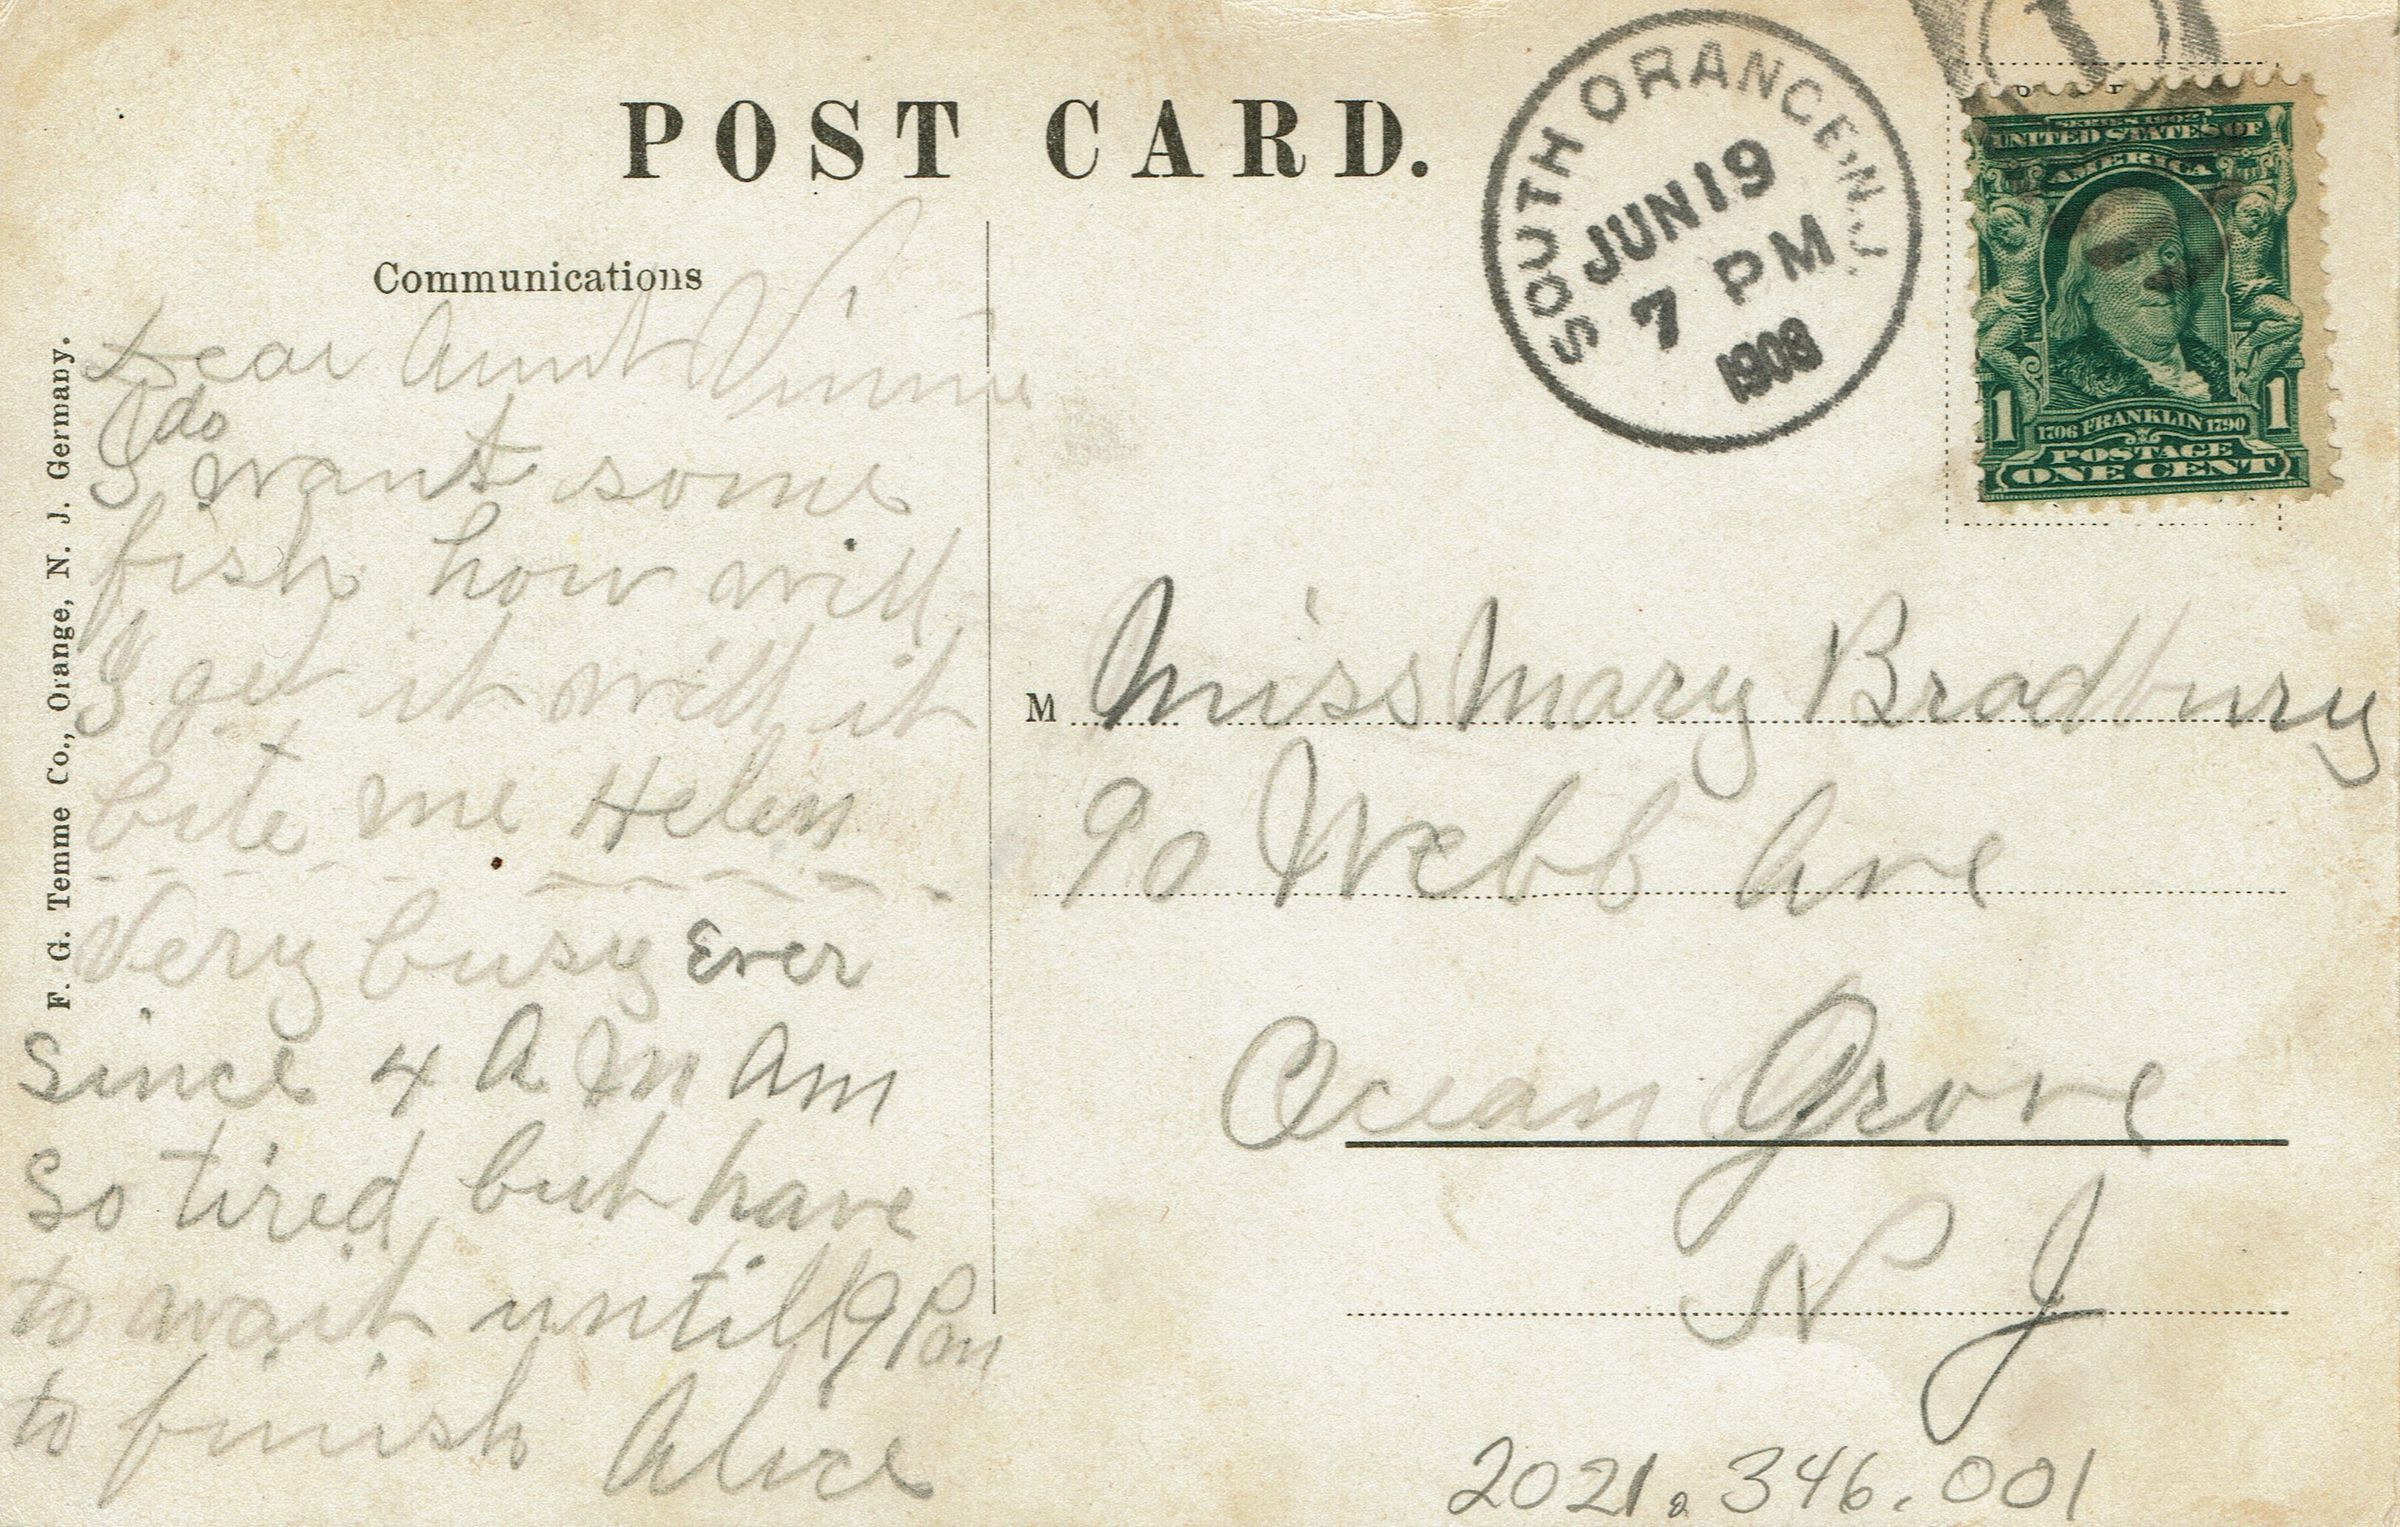 POST CARD.
Communications
Dear Aunt Vinnie
do
I want some
fish how will
I get it will it
bite me Helen
Very busy Ever
Since 4 A M Am
So tired, but have
to wait until 9 Pm
to finish Alice
F. G. Temme Co., Orange, N. J. Germany.
SOUTH ORANGE, N.J.
JUN 19
7 PM
1908
1
SERIES 1902
UNITED STATES OF
AMERICA
1706 FRANKLIN 1790
1 1
POSTAGE
ONE CENT
M Miss Mary Bradbury
90 Webb Ave
Ocean Grove
N J
2021.346.001